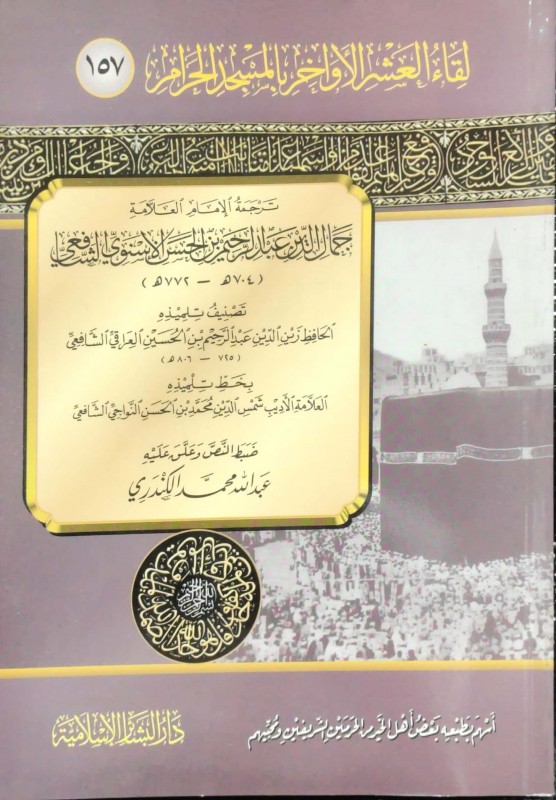 لِقَاءُ العَشْرِ الأَوَاخِرِ بِالمَسْجِدِ الحَرَامِ
١٥٧
تَرجَمَةُ الإِمَامِ العَلَّامَةِ
جَمَالِ الدِّينِ عَبْدِ الرَّحِيمِ بْنِ الحَسَنِ الإِسْنَوِيِّ الشَّافِعِيِّ
(٧٠٤هـ – ٧٧٢هـ)
تَصْنِيفُ تِلمِيذِهِ
الحَافِظِ زَيْنِ الدِّينِ عَبْدِ الرَّحِيمِ بْنِ الحُسَيْنِ العِرَاقِيِّ الشَّافِعِيِّ
(٧٢٥ – ٨٠٦هـ)
بِخَطِّ تِلمِيذِهِ
العَلَّامَةِ الأَدِيبِ شَمْسِ الدِّينِ مُحَمَّدِ بْنِ الحَسَنِ النَّوَاجِيِّ الشَّافِعِيِّ
ضَبَطَ النَّصَّ وَعَلَّقَ عَلَيْهِ
عَبْدُ اللهِ مُحَمَّدٌ الكَنْدَرِيُّ
أَسْهَمَ بِطَبْعِهِ بَعْضُ أَهْلِ الخَيْرِ مِنَ الحَرَمَيْنِ الشَّرِيفَيْنِ وَمُحِبِّيهِم
دَارُ البَشَائِرِ الإِسْلَامِيَّةِ